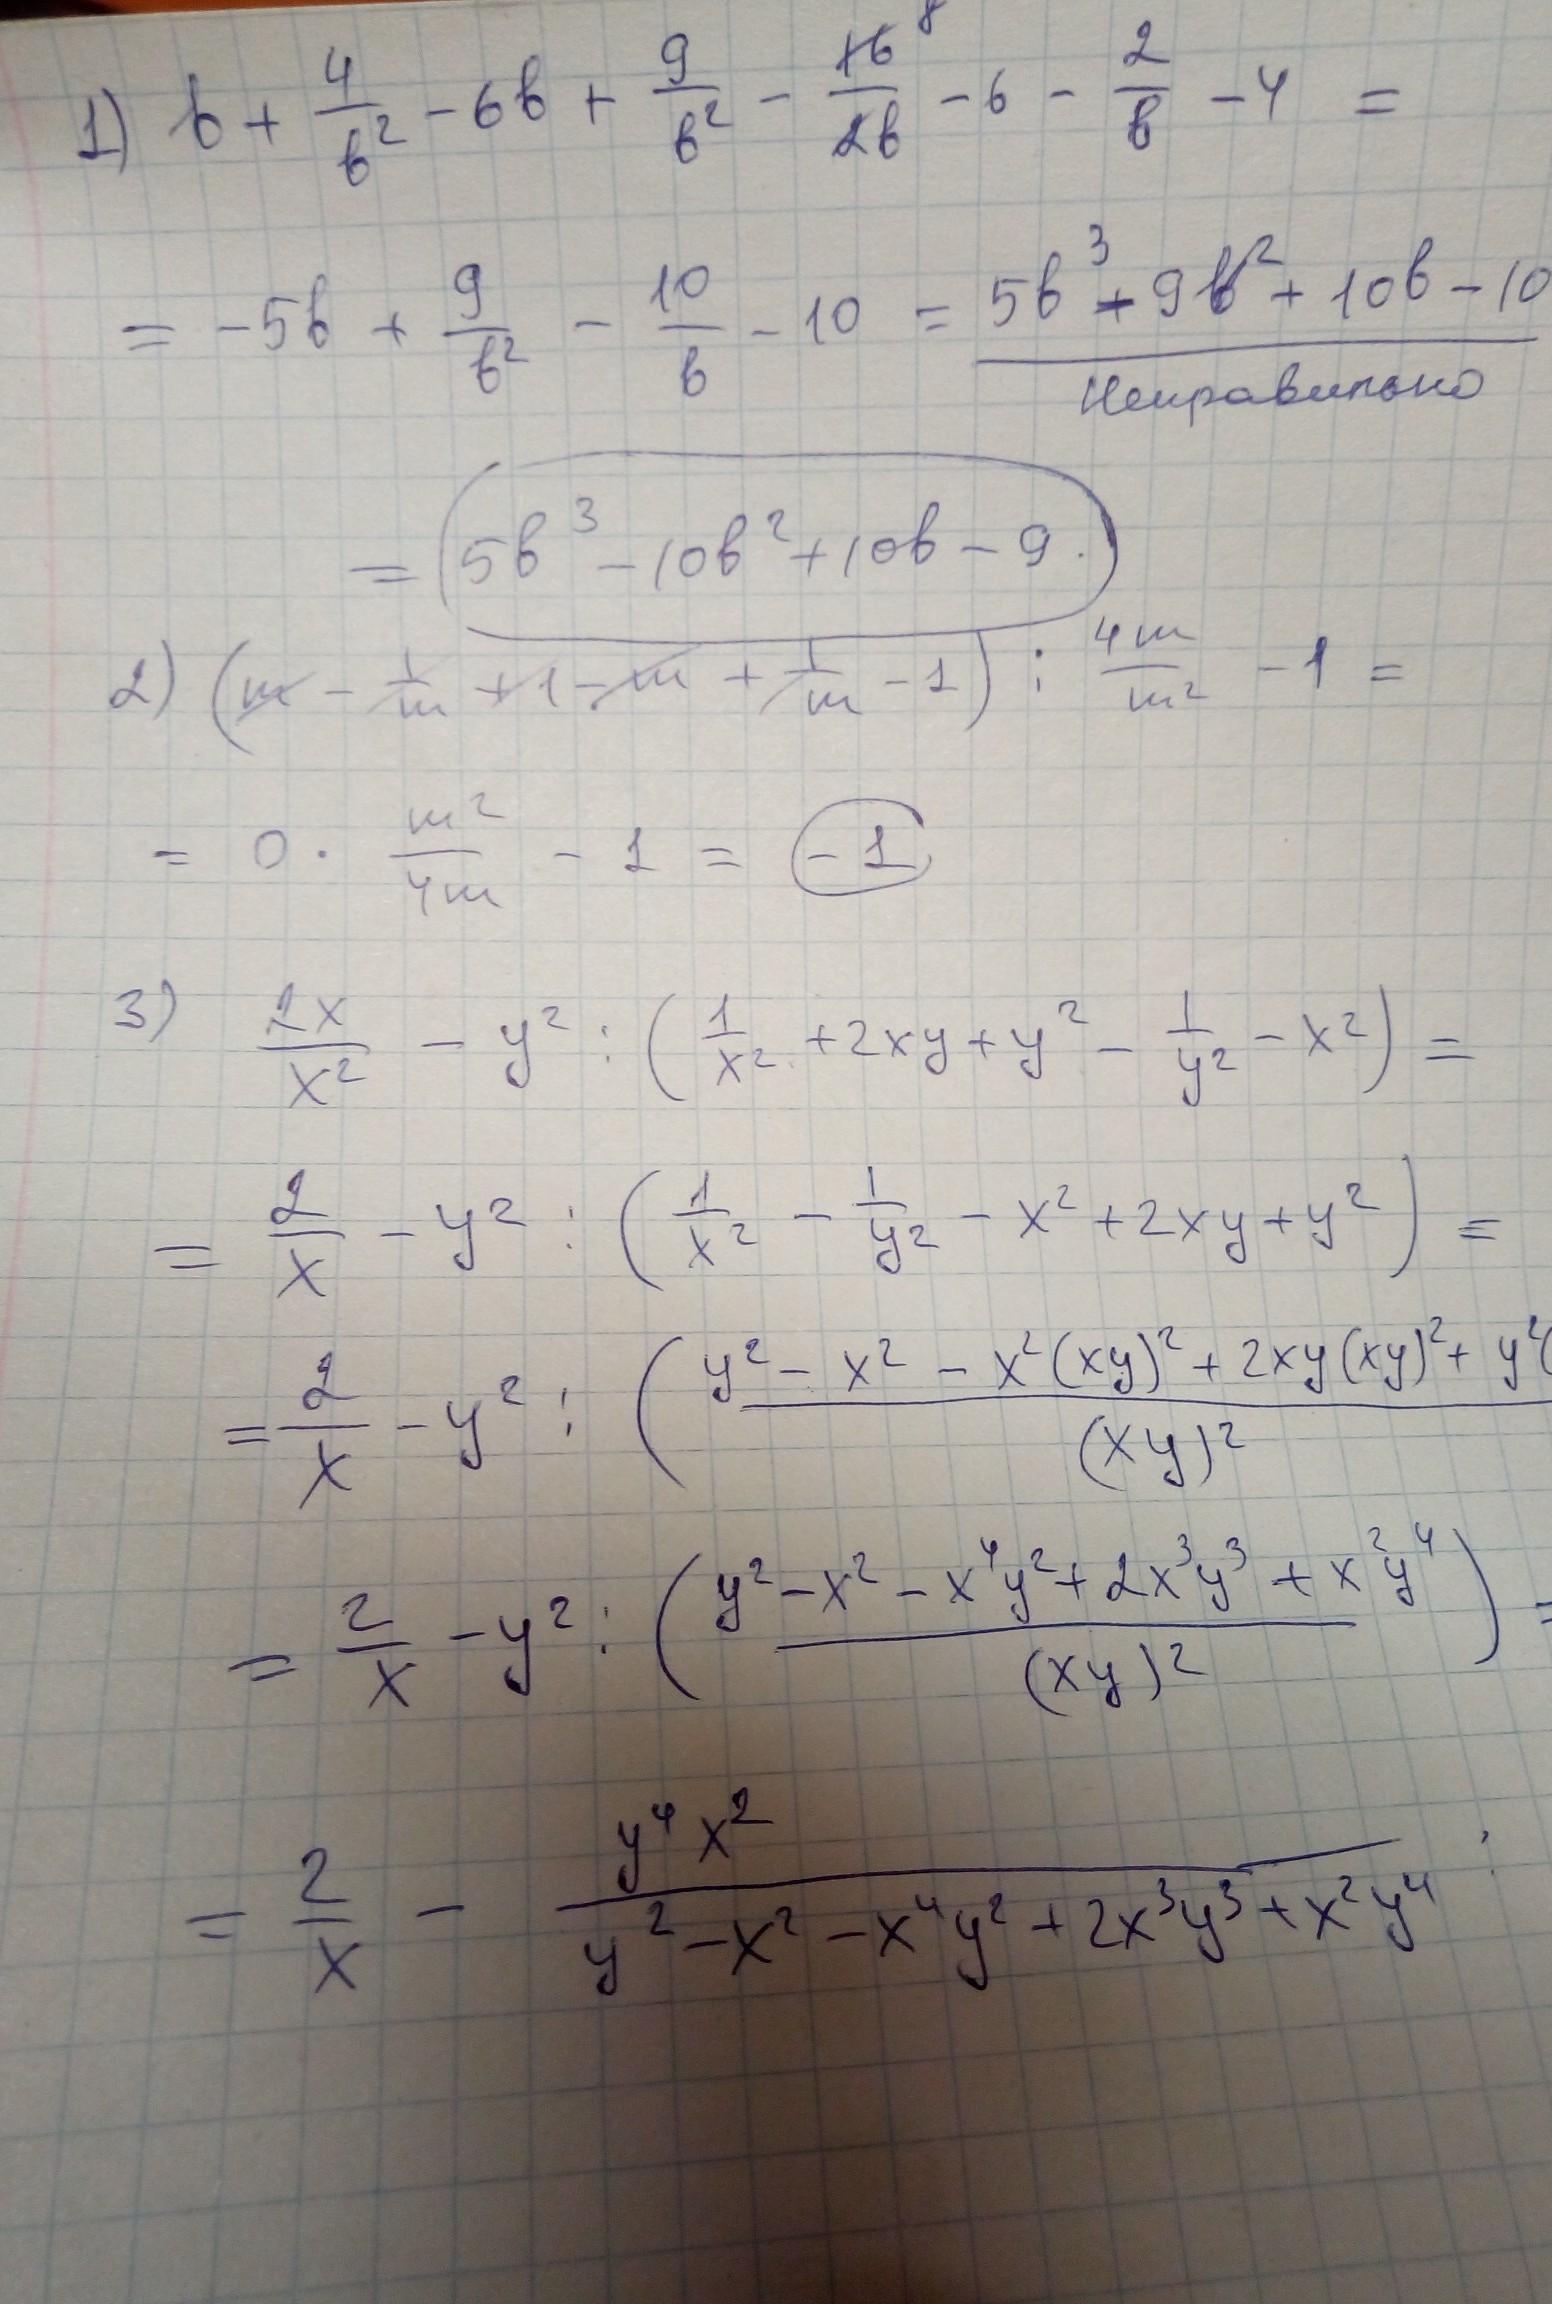 1) b + 4/b² - 6b + 9/b² - 16/2b 8 - 6 - 2/b - 4 =
= -5b + 9/b² - 10/b - 10 = 5b³ + 9b² + 10b - 10
Неправильно
= 5b³ - 10b² + 10b - 9.
2) (m - 1/m + 1 - m + 1/m - 1) : 4m/m² - 1 =
= 0 · m²/4m - 1 = -1
3) 2x/x² - y² : (1/x² + 2xy + y² - 1/y² - x²) =
= 2/x - y² : (1/x² - 1/y² - x² + 2xy + y²) =
= 2/x - y² : (y² - x² - x²(xy)² + 2xy(xy)² + y²(/(xy)²
= 2/x - y² : (y² - x² - x⁴y² + 2x³y³ + x²y⁴/(xy)²) =
= 2/x - y⁴x²/y² - x² - x⁴y² + 2x³y³ + x²y⁴ :